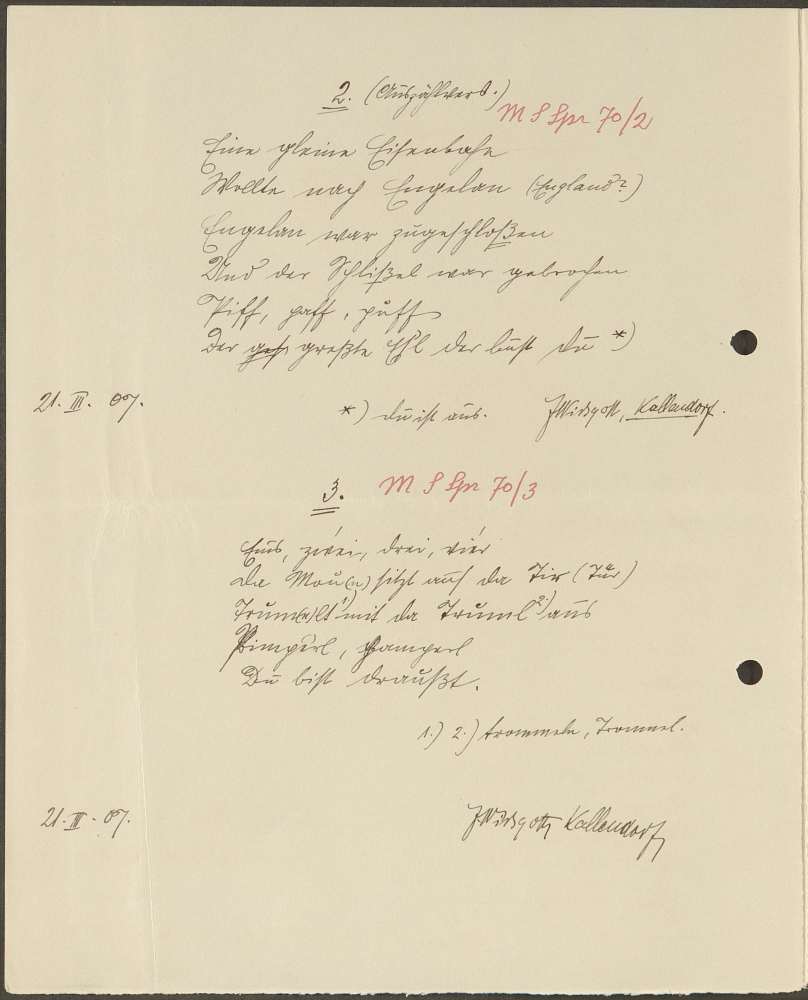 2. (Auszählvers.)
M S Spr 70/2
Eine gleine Eisenbahn
Wollte nach Engelan (England?)
Engelan war zugeschloßen
Und der Schlißel war gebrochen
Piff, paff, puff
Der greßte Esl der bust du *)
21. III. 07.
*) du ist aus. J Wirsgott, Kallendorf.
3. M S Spr 70/3
Eins, zwei, drei, vier
Da Mou(n) sitzt auf da Tir (Tür)
Trum(e)lt 1) mit da Truml 2) aus
Pimperl, Pamperl
Du bist draußt.
1.) 2.) trommeln, Trommel.
21. III. 07. J. Wirsgott, Kallendorf